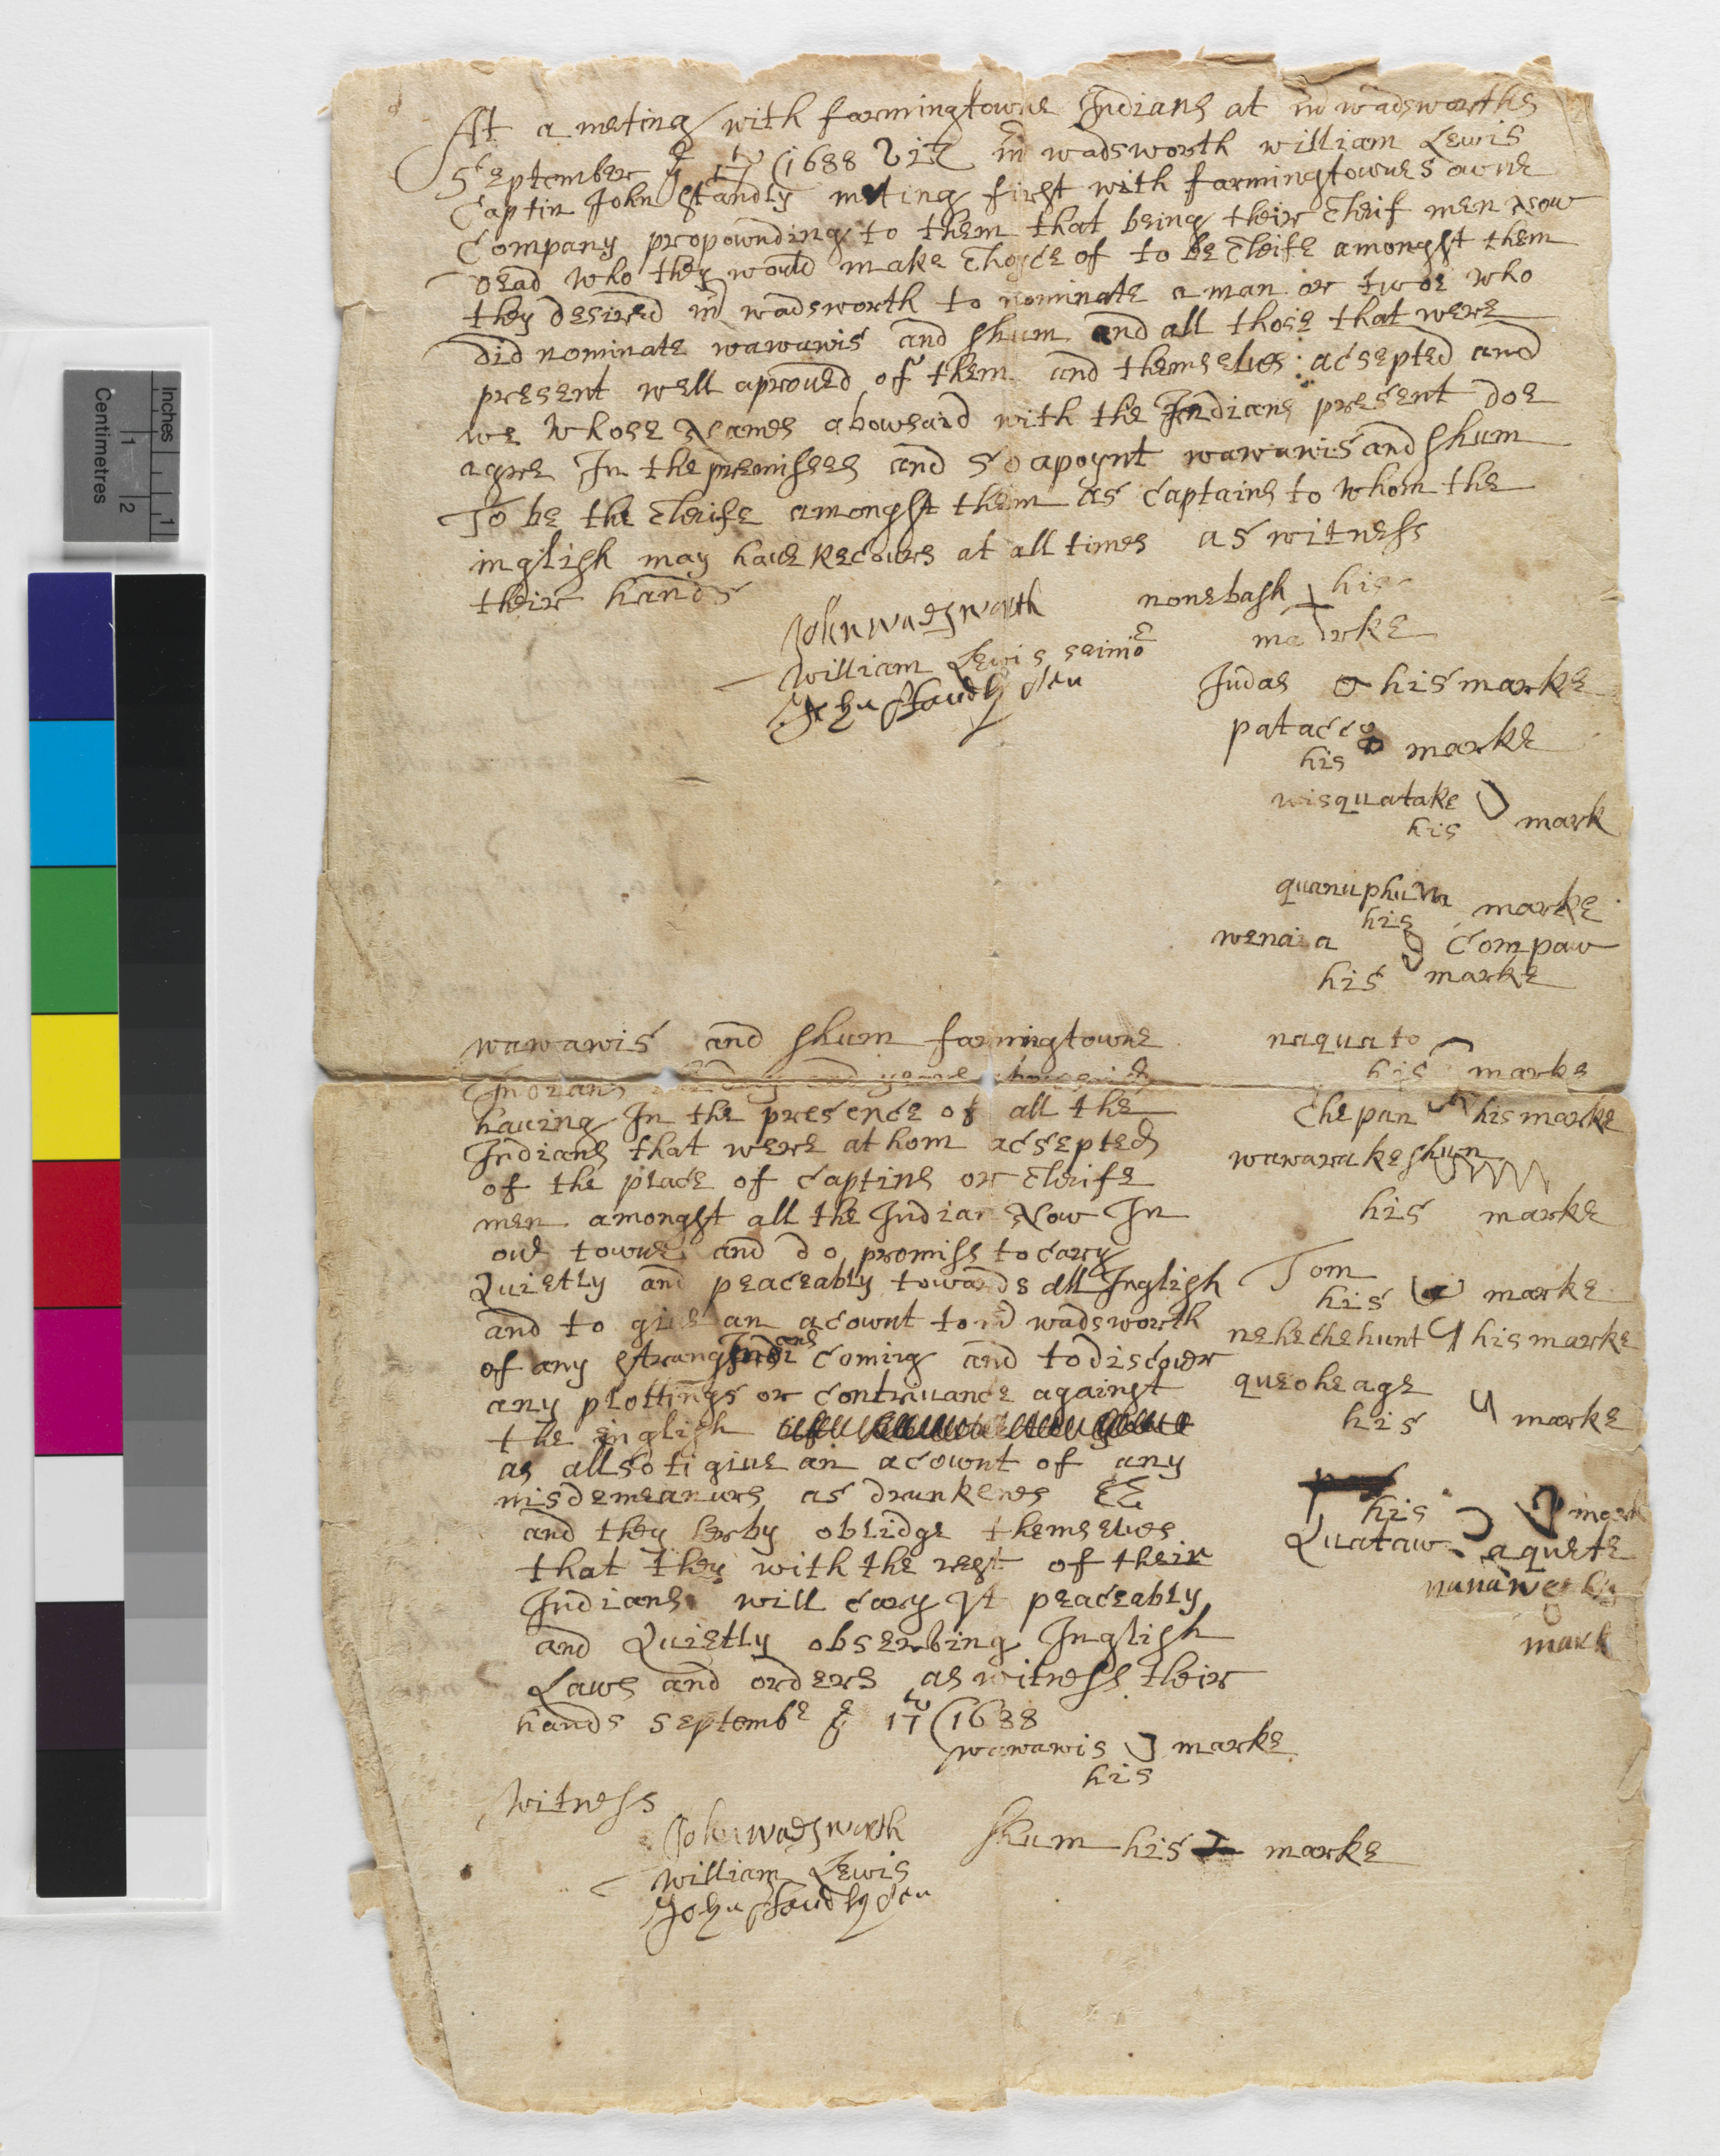 At a meting with farmingtowne Indians at mr wadsworths
September ye 17th (1688 Viz mr wadsworth william Lewis
Captin John Standly meting first with farmingtownes owne
Company propownding to them that being their Cheif men Now
dead who they would make Choyce of to be Cheife amongst them
they desired mr wadsworth to nominate a man or twoe who
did nominate wawawis and Shum and all those that were
present well aproued of them and themselues acsepted and
we whose Names abouesaid with the Indians present doe
agree In the premisses and so apoynt wawawis and Shum
To be the Cheife amongst them as Captains to whom the
inglish may haue Recours at all times as witness
their hands
John wadsworth
william Lewis
John Standly sen
nonebash his
marke
Judas his marke
patacco
his marke
wisquatake
his mark
quanuphuwa
his marke
compaw
his marke
naquato
his marke
Chepan his marke
wawarakeshun
his marke
Tom
his marke
nehechehunt his marke
queoheage
his marke
his mark
Quataw aquete
his
mark
wawawis and Shum farmingtowne
Indians
hauing In the presence of all the
Indians that were at hom acsepted
of the place of Captins or Cheife
men amongst all the Indian Now In
our towne and do promiss to cary
Quietly and peaceably towards all Inglish
and to giue an acownt to mr wadsworth
of any strang Indians Coming and to discouer
any plottings or contriuance against
the inglish
as allso to giue an acownt of any
misdemeanurs as drunkenes &c
and they herby oblidge themselues
that they with the rest of their
Indians will cary It peaceably
and Quietly obserbing Inglish
Laws and orders as witness their
hands Septembe ye 17th (1688
wawawis marke
his
Shum his marke
witness
John wadsworth
william Lewis
John Standly sen
Inches
1
Centimetres
1
2